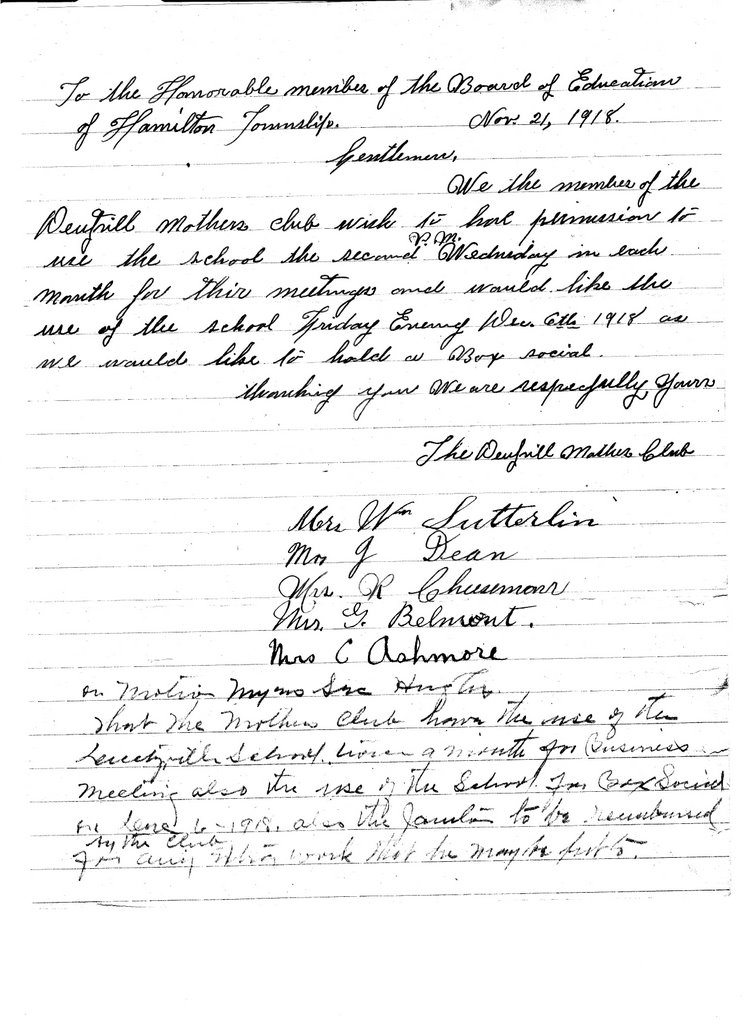 To the Honorable member of the Board of Education
of Hamilton Township. Nov. 21, 1918.
Gentlemen,
We the member of the
Mothers Club wish to have permission to
use the school the second P.M. Wednesday in each
month for their meetings and would like the
use of the school Friday Evening Dec. 6th 1918 as
we would like to hold a Box social.
thanking you We are respecfully Yours
The Mother Club
Mrs Wm Sutterlin
Mrs J Dean
Mrs. R Cheeseman
Mrs. G. Belmont.
Mrs C Ashmore
on Motion Myers Sec
that the Mothers Club have the use of the
School a month for Business
Meeting also the use of the School for Box Social
on 6-1918. also the Janitor to be reimbursed
by the Club
for any work that he may be put to.